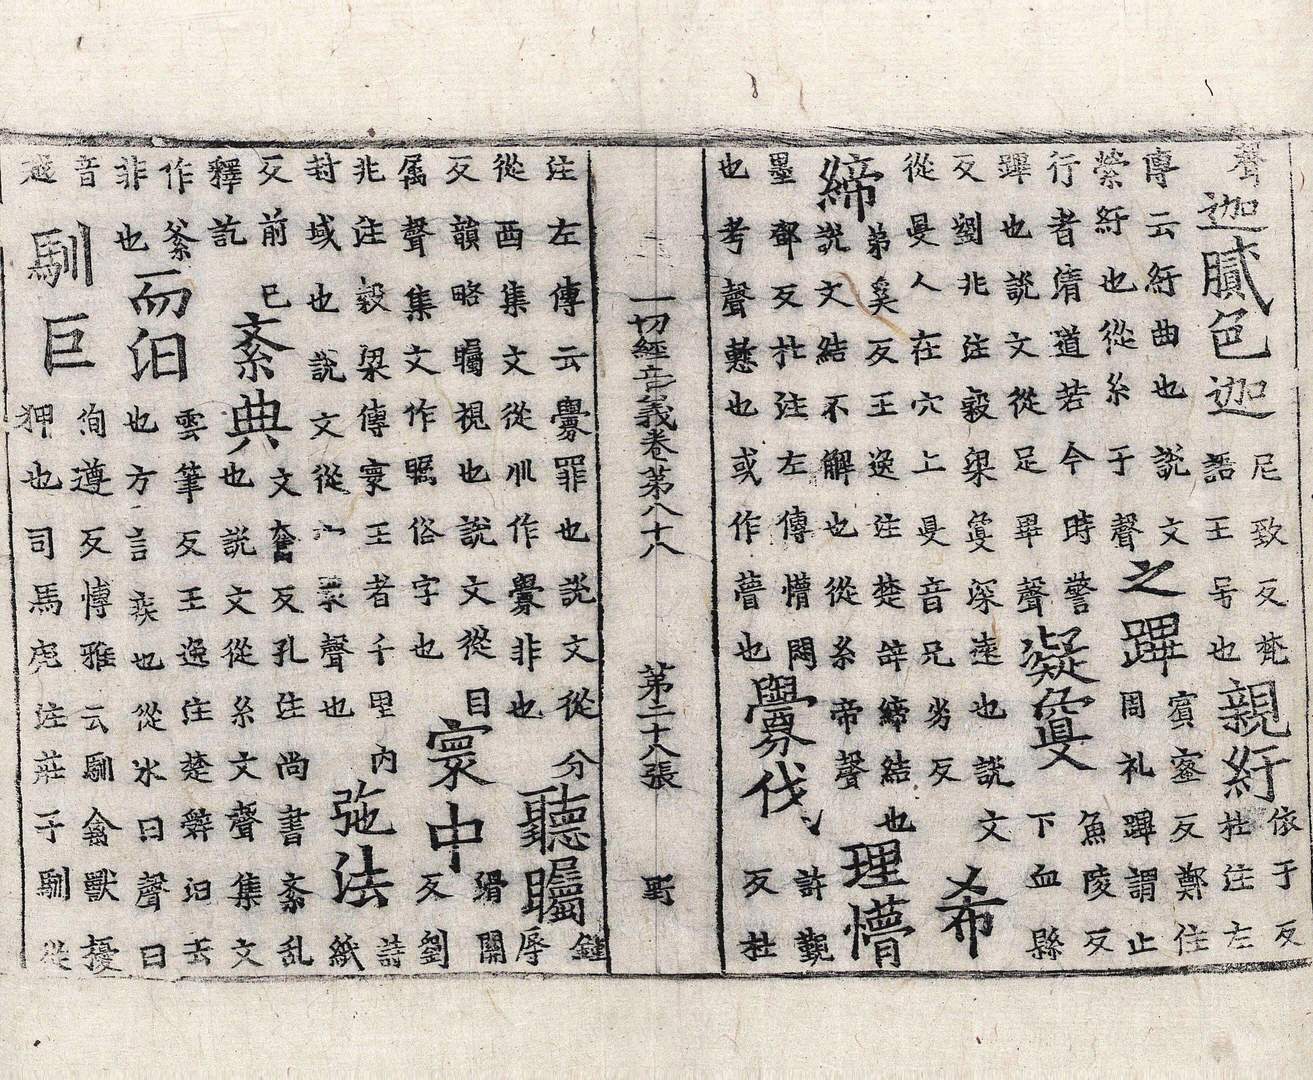 聲迦膩色迦尼致反梵語王号也親紆依于反杜注左
傳云紆曲也說文縈紆也從糸于聲之蹕賓蜜反鄭住周礼蹕謂止
行者清道若今時警蹕也說文從足畢聲凝敻魚陵反下血縣
反劉兆注穀梁敻深遠也說文從敻人在穴上敻音兄劣反希
締弟奚反王逸注楚辝締結也說文結不解也從糸帝聲理懵
墨鄧反杜注左傳懵悶也考聲懑也或作瞢也釁伐許覲反杜
一切經音義卷第八十八 第二十八張 野
注左傳云釁罪也說文從分從西集文從爪作釁非也聽矚鍾辱
反韻略矚視也說文從目属聲集文作瞩俗字也寰中滑關反劉
兆注穀梁傳寰王者千里內封域也說文從宀瞏聲也弛法詩紙
反前已釋訖紊典文奮反孔注尚書紊乱也說文從糸文聲集文
作非也而汩雲筆反王逸注楚辭汩去也方言疾也從水曰聲曰
音越馴巨徇遵反博雅云馴禽獸擾狎也司馬彪注莊子馴從